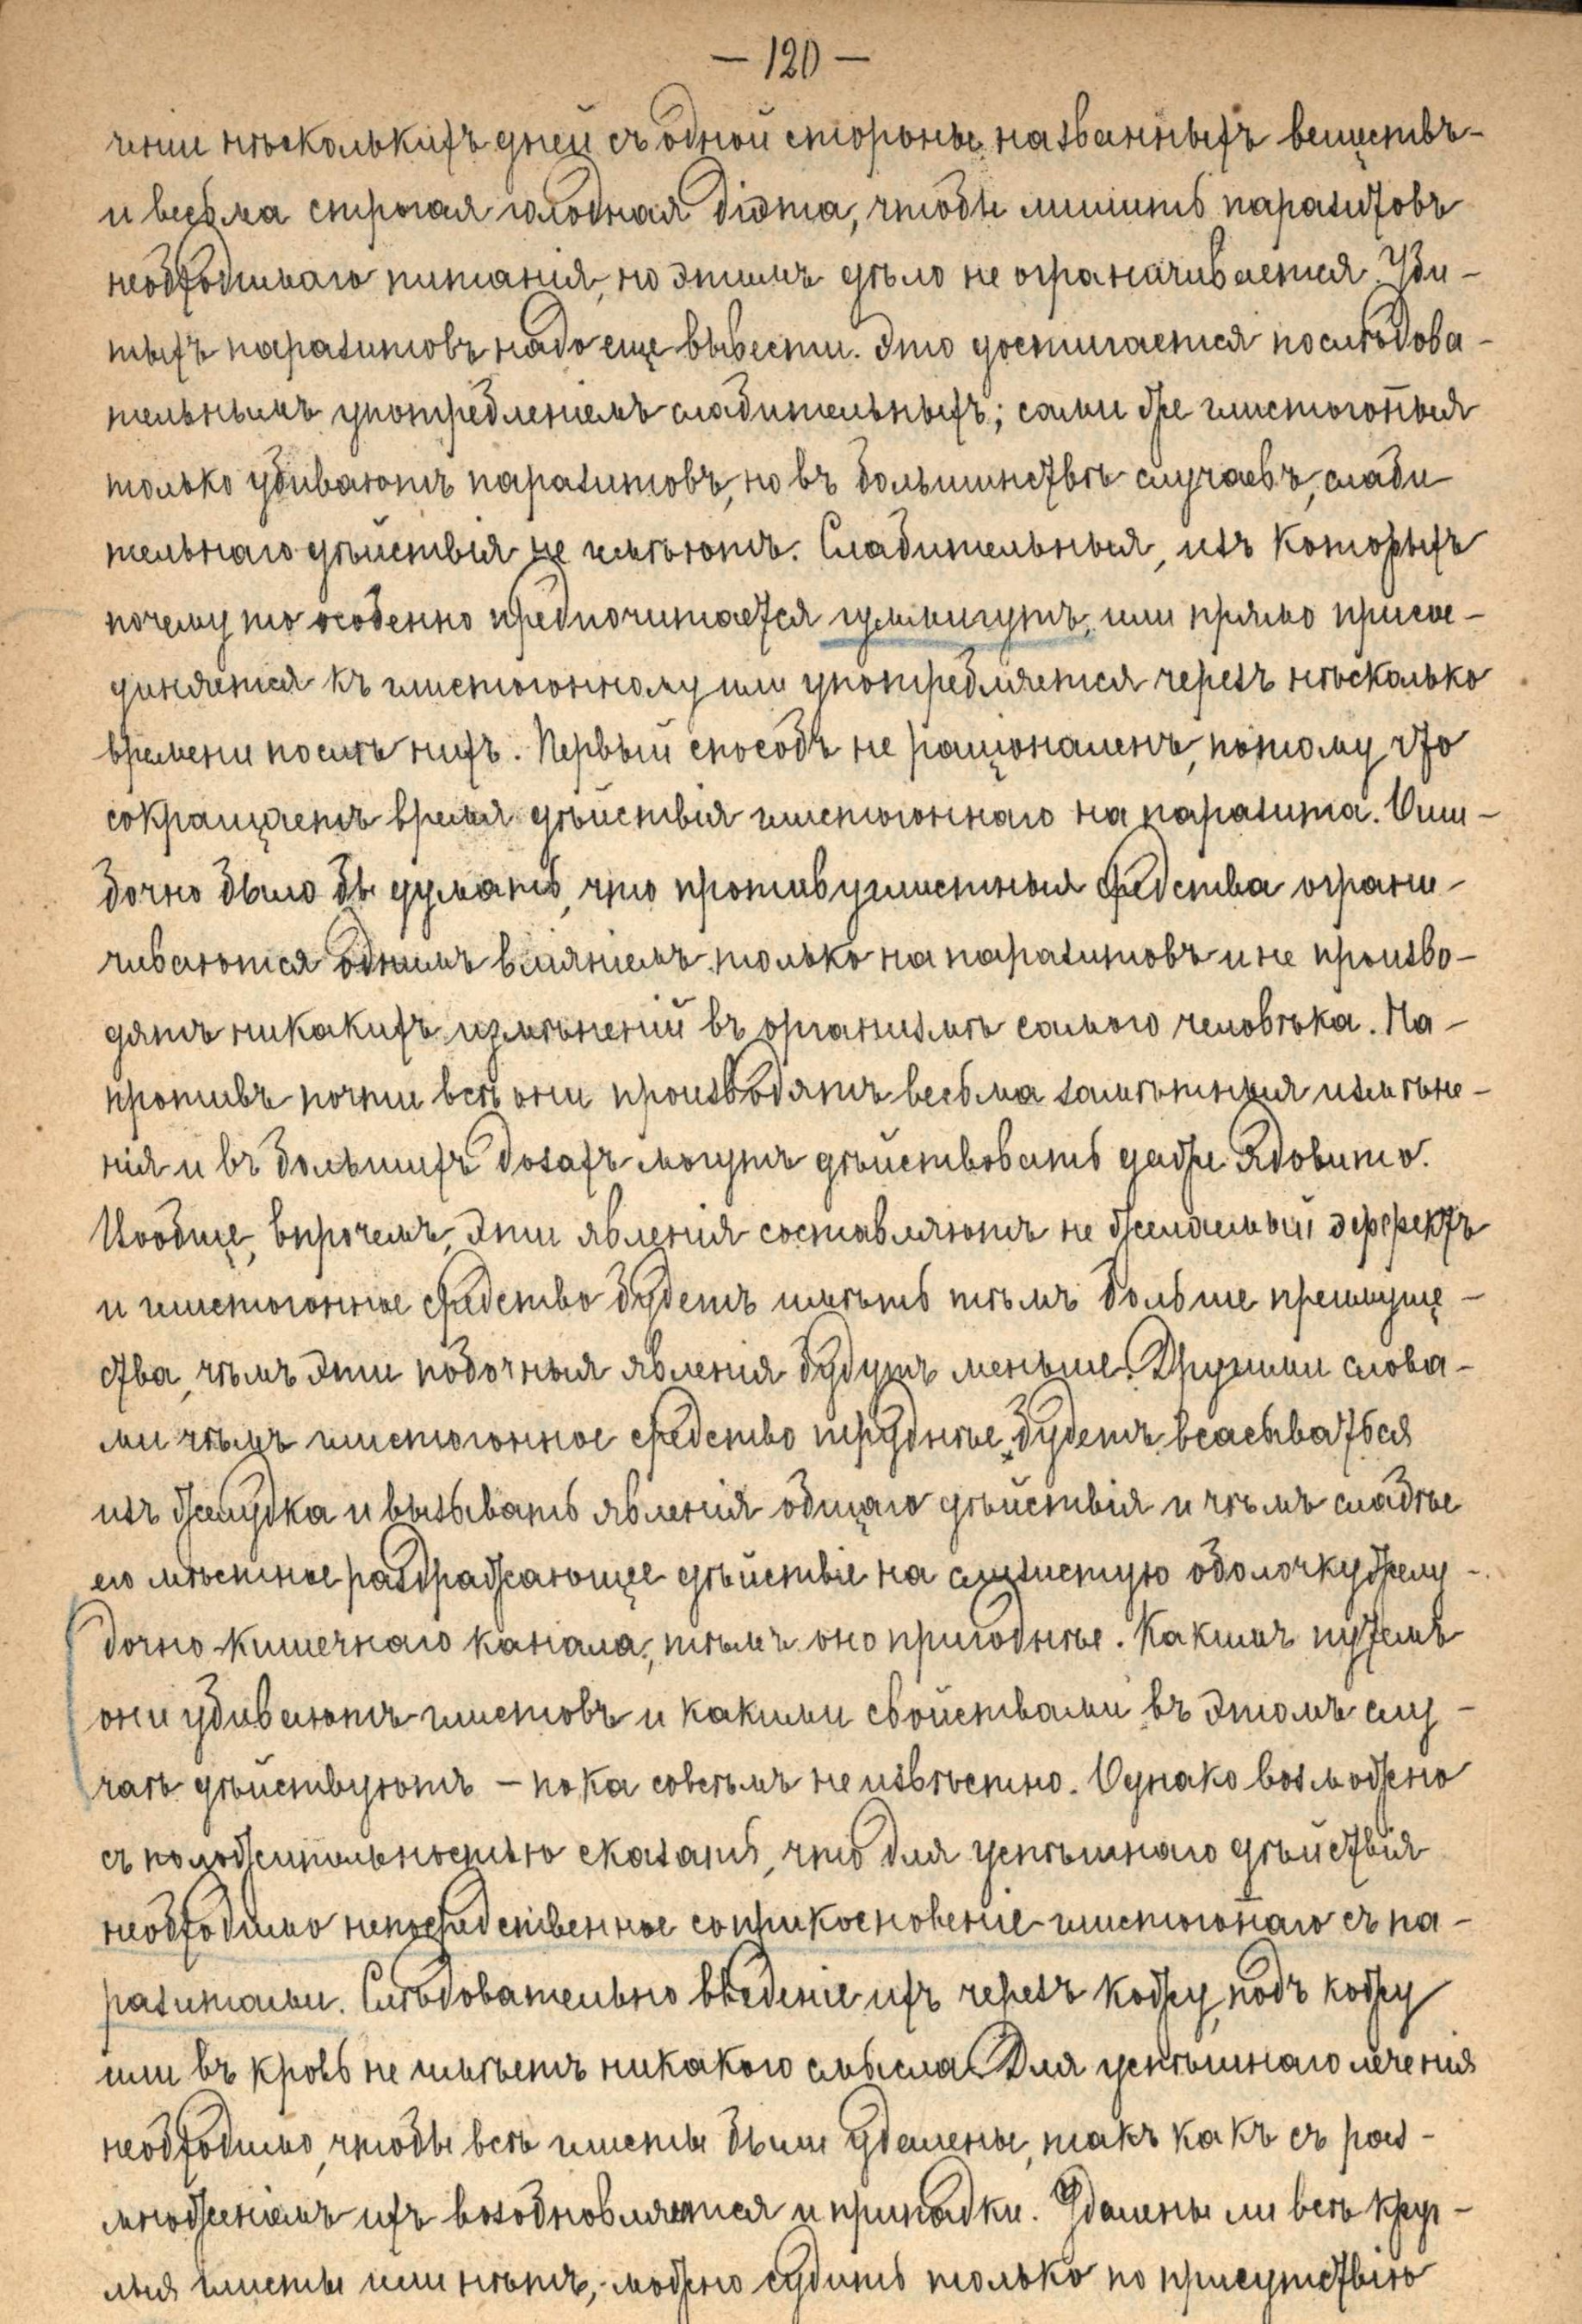 — 120 —
ченіи нѣсколькихъ дней съ одной стороны названныхъ веществъ-
и весьма строгая голодная діэта, чтобы лишить паразитовъ
необходимаго питанія, но этимъ дѣло не ограничивается. Уби-
тыхъ паразитовъ надо еще вывести. Это достигается послѣдова-
тельнымъ употребленіемъ слабительныхъ; сами же глистогоныя
только убиваютъ паразитовъ, но въ большинствѣ случаевъ, слаби
тельнаго дѣйствія не имѣютъ. Слабительныя, изъ которыхъ
почему то особенно предпочитается гуммигутъ, или прямо присое-
диняется къ глистогонному или употребляется черезъ нѣсколько
времени послѣ нихъ. Первый способъ не раціоналенъ, потому что
сокращаетъ время дѣйствія глистогоннаго на паразита. Оши-
бочно было бы думать, что противуглистныя средства ограни-
чиваются однимъ вліяніемъ только на паразитовъ и не произво-
дятъ никакихъ измѣненій въ организмѣ самого человѣка. На-
противъ почти всѣ они производятъ весьма замѣтныя измѣне-
нія и въ большихъ дозахъ могутъ дѣйствовать даже ядовито.
Вообще, впрочемъ, эти явленія составляютъ не желаемый эффектъ
и глистогонное средство будетъ имѣть тѣмъ больше преимуще-
ства, чѣмъ эти побочныя явленія будутъ меньше. Другими слова-
ми чѣмъ глистогонное средство труднѣе будетъ всасываться
изъ желудка и вызывать явленія общаго дѣйствія и чѣмъ слабѣе
его мѣстное раздражающее дѣйствіе на слизистую оболочку желу-
дочно-кишечнаго канала, тѣмъ оно пригоднѣе. Какимъ путемъ
они убиваютъ глистовъ и какими свойствами въ этомъ слу-
чаѣ дѣйствуютъ – пока совсѣмъ неизвѣстно. Однако возможно
съ положительностью сказать, что для успѣшнаго дѣйствія
необходимо непосредственное соприкосновеніе глистогонаго съ па-
разитами. Слѣдовательно введеніе ихъ черезъ кожу, подъ кожу
или въ кровь не имѣетъ никакого смысла. Для успѣшнаго леченія
необходимо, чтобы всѣ глисты были удалены, такъ какъ съ раз-
множеніемъ ихъ возобновляются и припадки. Удалены ли всѣ круг-
лыя глисты или нѣтъ, можно судить только по присутствію